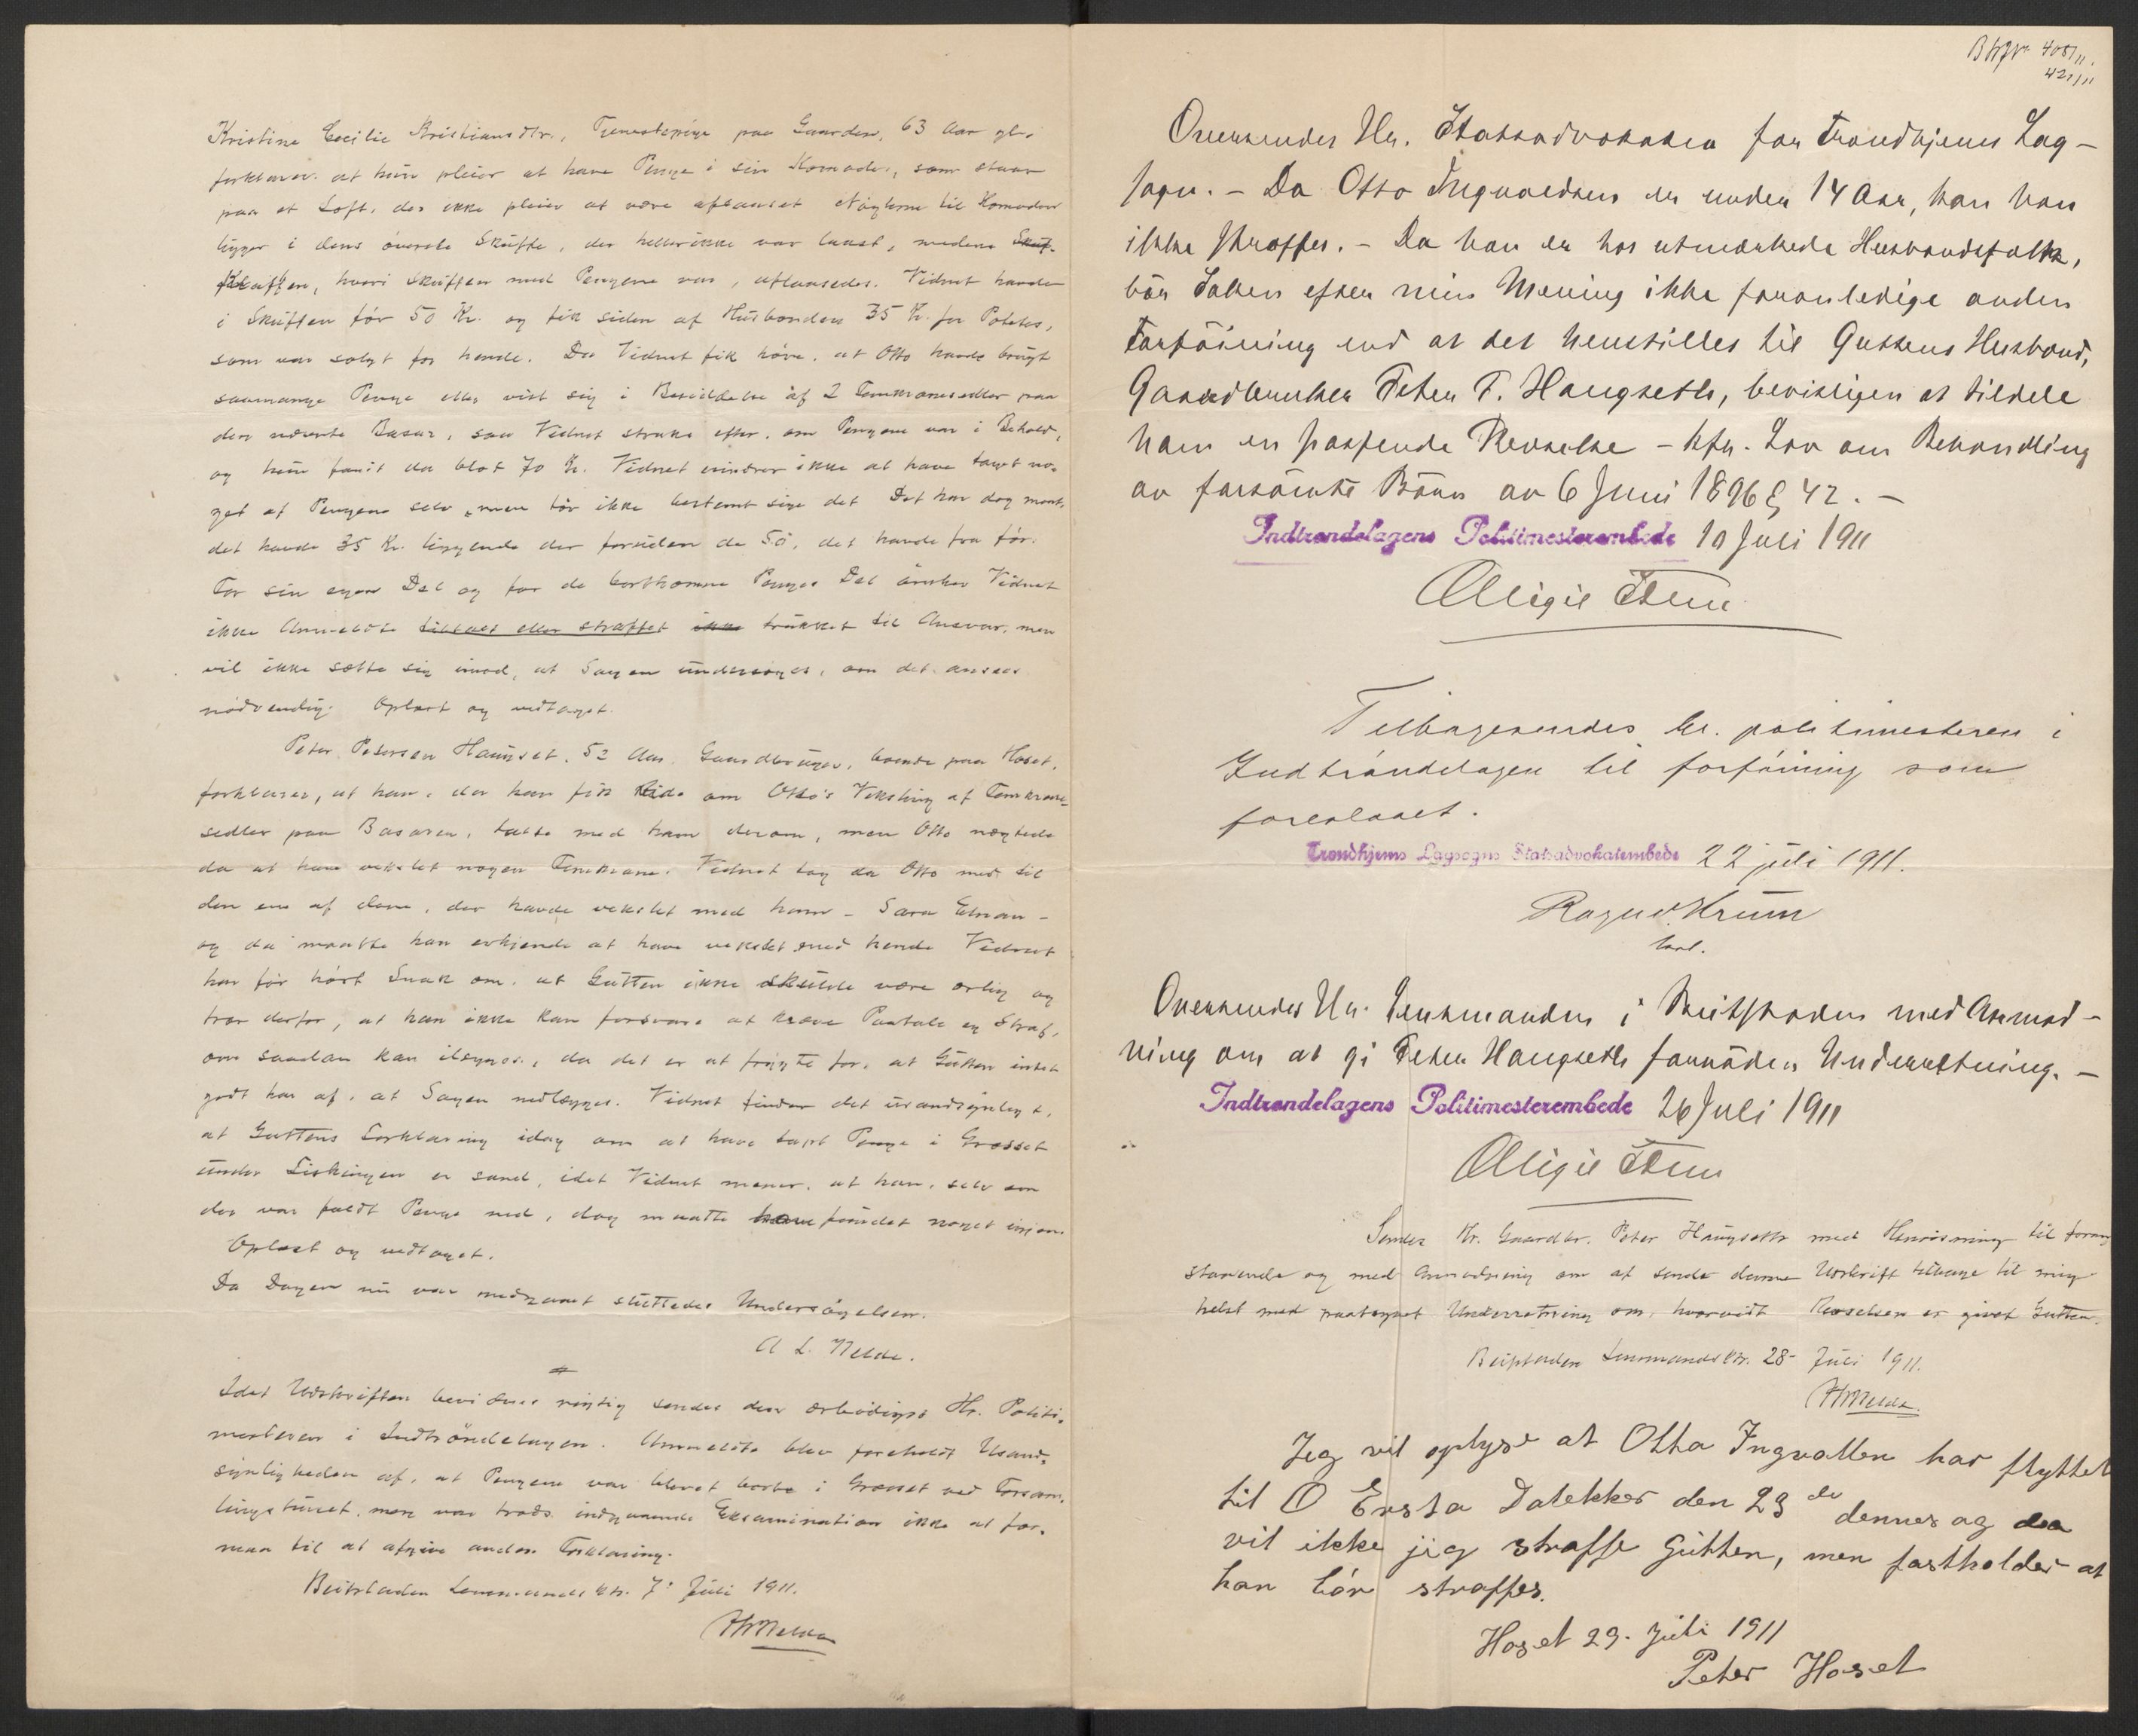 Kristine Cecilie Kristiansdtr., Tjenestepige paa Gaarden, 63 Aar gl.
forklarer at hun pleier at have Penge i sin Komode, som staar
paa et Loft, der ikke pleier at være aflaaset Nøglerne til Komoden
ligger i dens øverste Skuffe, der heller ikke var laast, medens
Skuffen, hvori Skuffen med Pengene var, aflaasedes. Vidnet havde
i Skuffen før 50 Kr. og fik siden af Husbonden 35 Kr. for Poteter,
som var solgt for hende. Da Vidnet fik høre, at Otto havde brugt
saamange Penge eller vist sig i Besiddelse af 2 Tikronesedler paa
den nævnte Basar, saa Vidnet straks efter, om Pengene var i Behold,
og hun fandt da blot 70 Kr. Vidnet erindrer ikke at have taget no-
get af Pengene selv, men tør ikke bestemt sige det Det har dog ment,
det havde 35 Kr. liggende der foruden de 50, det havde fra før.
For sin egen Del og for de bortkomne Penges Del ønsker Vidnet
ikke Anmeldte tiltalt eller straffet ikke trukket til Ansvar, men
vil ikke sætte sig imod, at Sagen undersøges, om det ansees
nødvendig. Oplæst og vedtaget.
Peter Petersen Haugset, 52 Aar, Gaardbruger, boende paa Hoset,
forklarer, at han, da han fik Vide om Otto's Veksling af Tikrone-
sedler paa Basaren, talte med ham derom, men Otto nægtede
da at have vekslet nogen Tikrone. Vidnet tog da Otto med til
den ene af dem, der havde vekslet med ham – Sara Elnan –
og da maatte han erkjende at have vekslet med hende Vidnet
har før hørt Snak om, at Gutten ikke skulde være ærlig og
tror derfor, at han ikke kan forsvare at kræve Paatale og Straf,
om saadan kan ilægges, da det er at frygte for, at Gutten intet
godt har af, at Sagen nedlægges. Vidnet finder det usandsynligt,
at Guttens Forklaring idag om at have tabt Penge i Græsset
under Leikingen er sand, idet Vidnet mener, at han, selv om
der var faldt Penge ned, dog maatte have fundet noget igjen
Oplæst og vedtaget.
Da Dagen nu var medgaaet sluttedes Undersøgelsen.
A L. Melde.
Idet Udskriftens bevidnes rigtig sendes den ærbødigst Hr. Politi-
mesteren i Indtrøndelagen. Anmeldte blev foreholdt Usand-
synligheden af, at Pengene var blevet borte i Græsset ved Forsam-
lingshuset, men var trods indgaaende Eksamination ikke at for-
maa til at afgive anden Forklaring.
Beitstaden Lensmandsktr. 7. Juli 1911.
ALMelde
B Nr 408/11.
421/11
Oversendes Hr. Statsadvokaten for Trondhjems Lag-
sogn. – Da Otto Ingvaldsen er under 14 Aar, kan han
ikke straffes. – Da han er hos utmærkede Husbondsfolk,
bør Saken efter min Mening ikke foranledige anden
Forføining end at det henstilles til Guttens Husbond,
Gaardbruker Peter P. Haugseth, bevisligen at tildele
ham en passende Revselse – kfr. Lov om Behandling
av forsømte Børn av 6 Juni 1896 § 42. –
Indtrøndelagens Politimesterembede 10 Juli 1911
Tilbagesendes hr. politimesteren i
Indtrøndelagen til forføining som
foreslaaet.
Trondhjems Lagsogns Statsadvokatembede 22 juli 1911.
Ragnv. Krum
const.
Oversendes Hr. Lensmanden i Beitstaden med Anmod-
ning om at gi Peter Haugseth fornøden Underretning. –
Indtrøndelagens Politimesterembede 26 Juli 1911
Sendes Hr. Gaardbr. Peter Haugseth med Henvisning til foran-
staaende og med Anmodning om at sende denne Udskrift tilbage til mig
helst med paategnet Underretning om, hvorvidt Revselsen er givet Gutten.
Beitstaden Lensmandsktr. 28 Juli 1911.
ALMelde.
Jeg vil oplyse at Otto Ingvallsen har flyttet
til O Ersta Dalekker den 23 de dennes og da
vil ikke jeg straffe Gutten, men fastholder at
han bør straffes.
Hoset 29. juli 1911
Peter Hoset